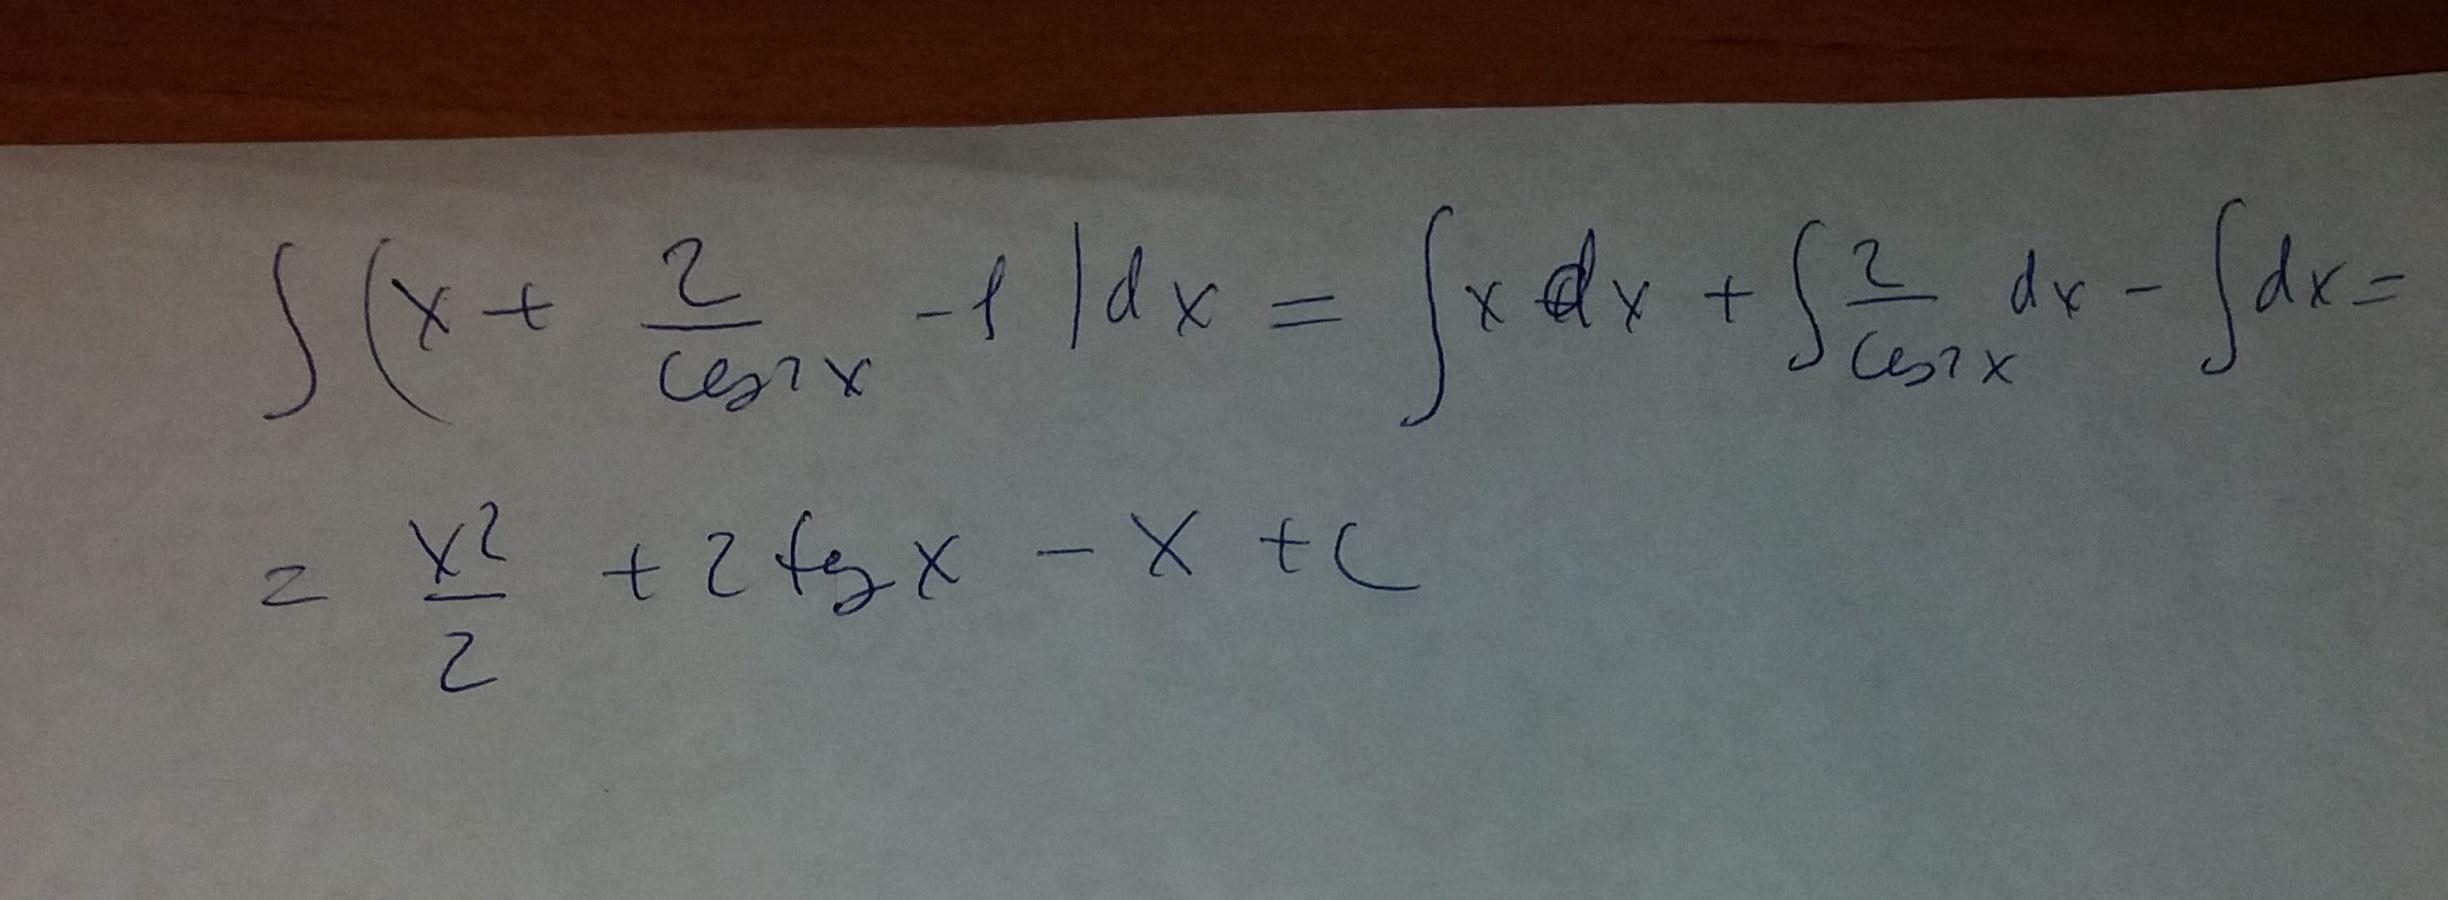 ∫(x + 2/cos²x - 1)dx = ∫x dx + ∫2/cos²x dx - ∫dx =
= x²/2 + 2 tg x - x + C